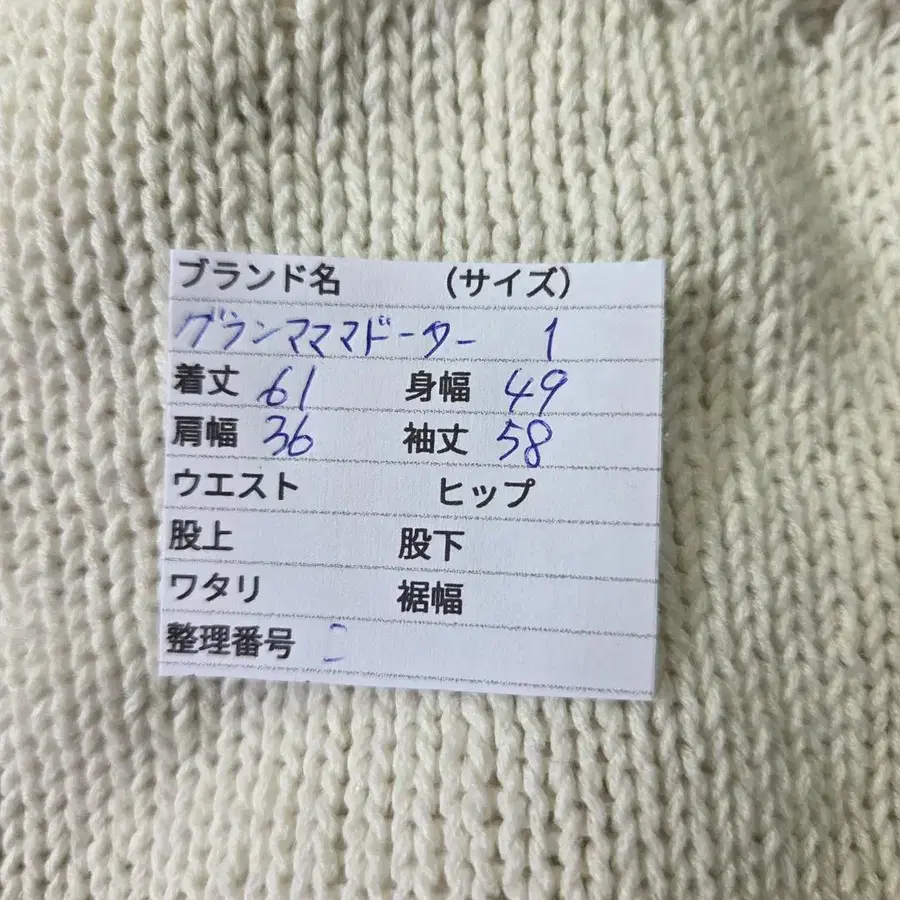 ブランド名 (サイズ)
グランマママドーター 1
着丈 61 身幅 49
肩幅 36 袖丈 58
ウエスト ヒップ
股上 股下
ワタリ 裾幅
整理番号 コ